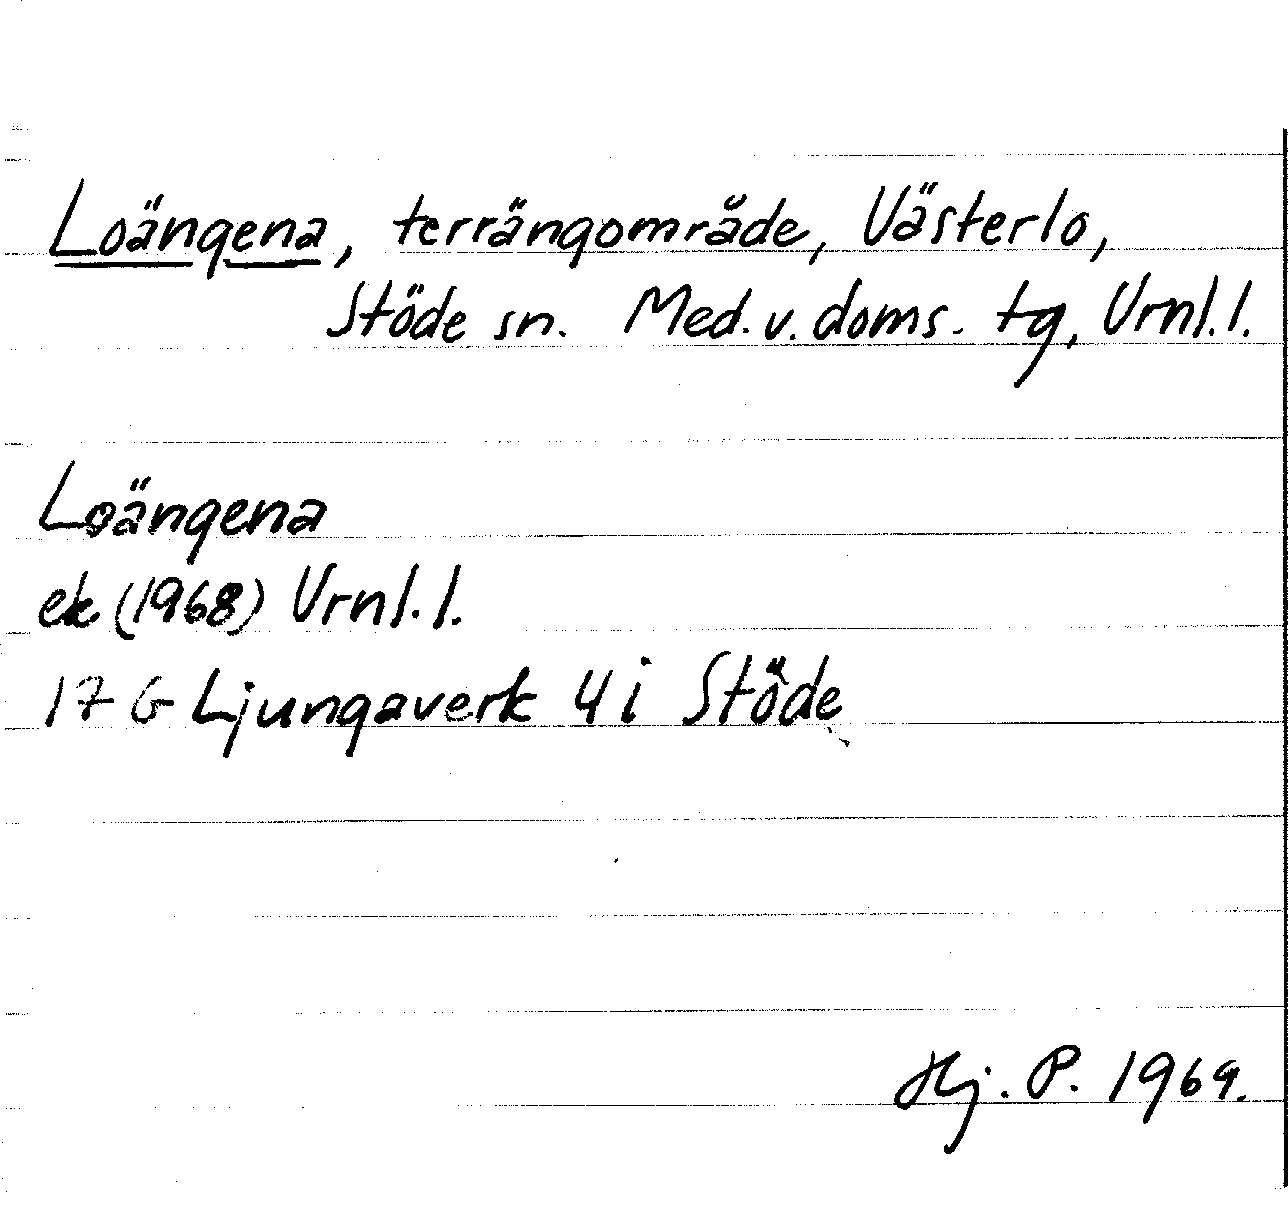 Loängena, terrängområde, Västerlo,
Stöde sn. Med. v. doms. tg, Vrnl. l.
Loängena
ek (1968) Vrnl. l.
17 G Ljungaverk 4 i Stöde
Hj. P. 1969.